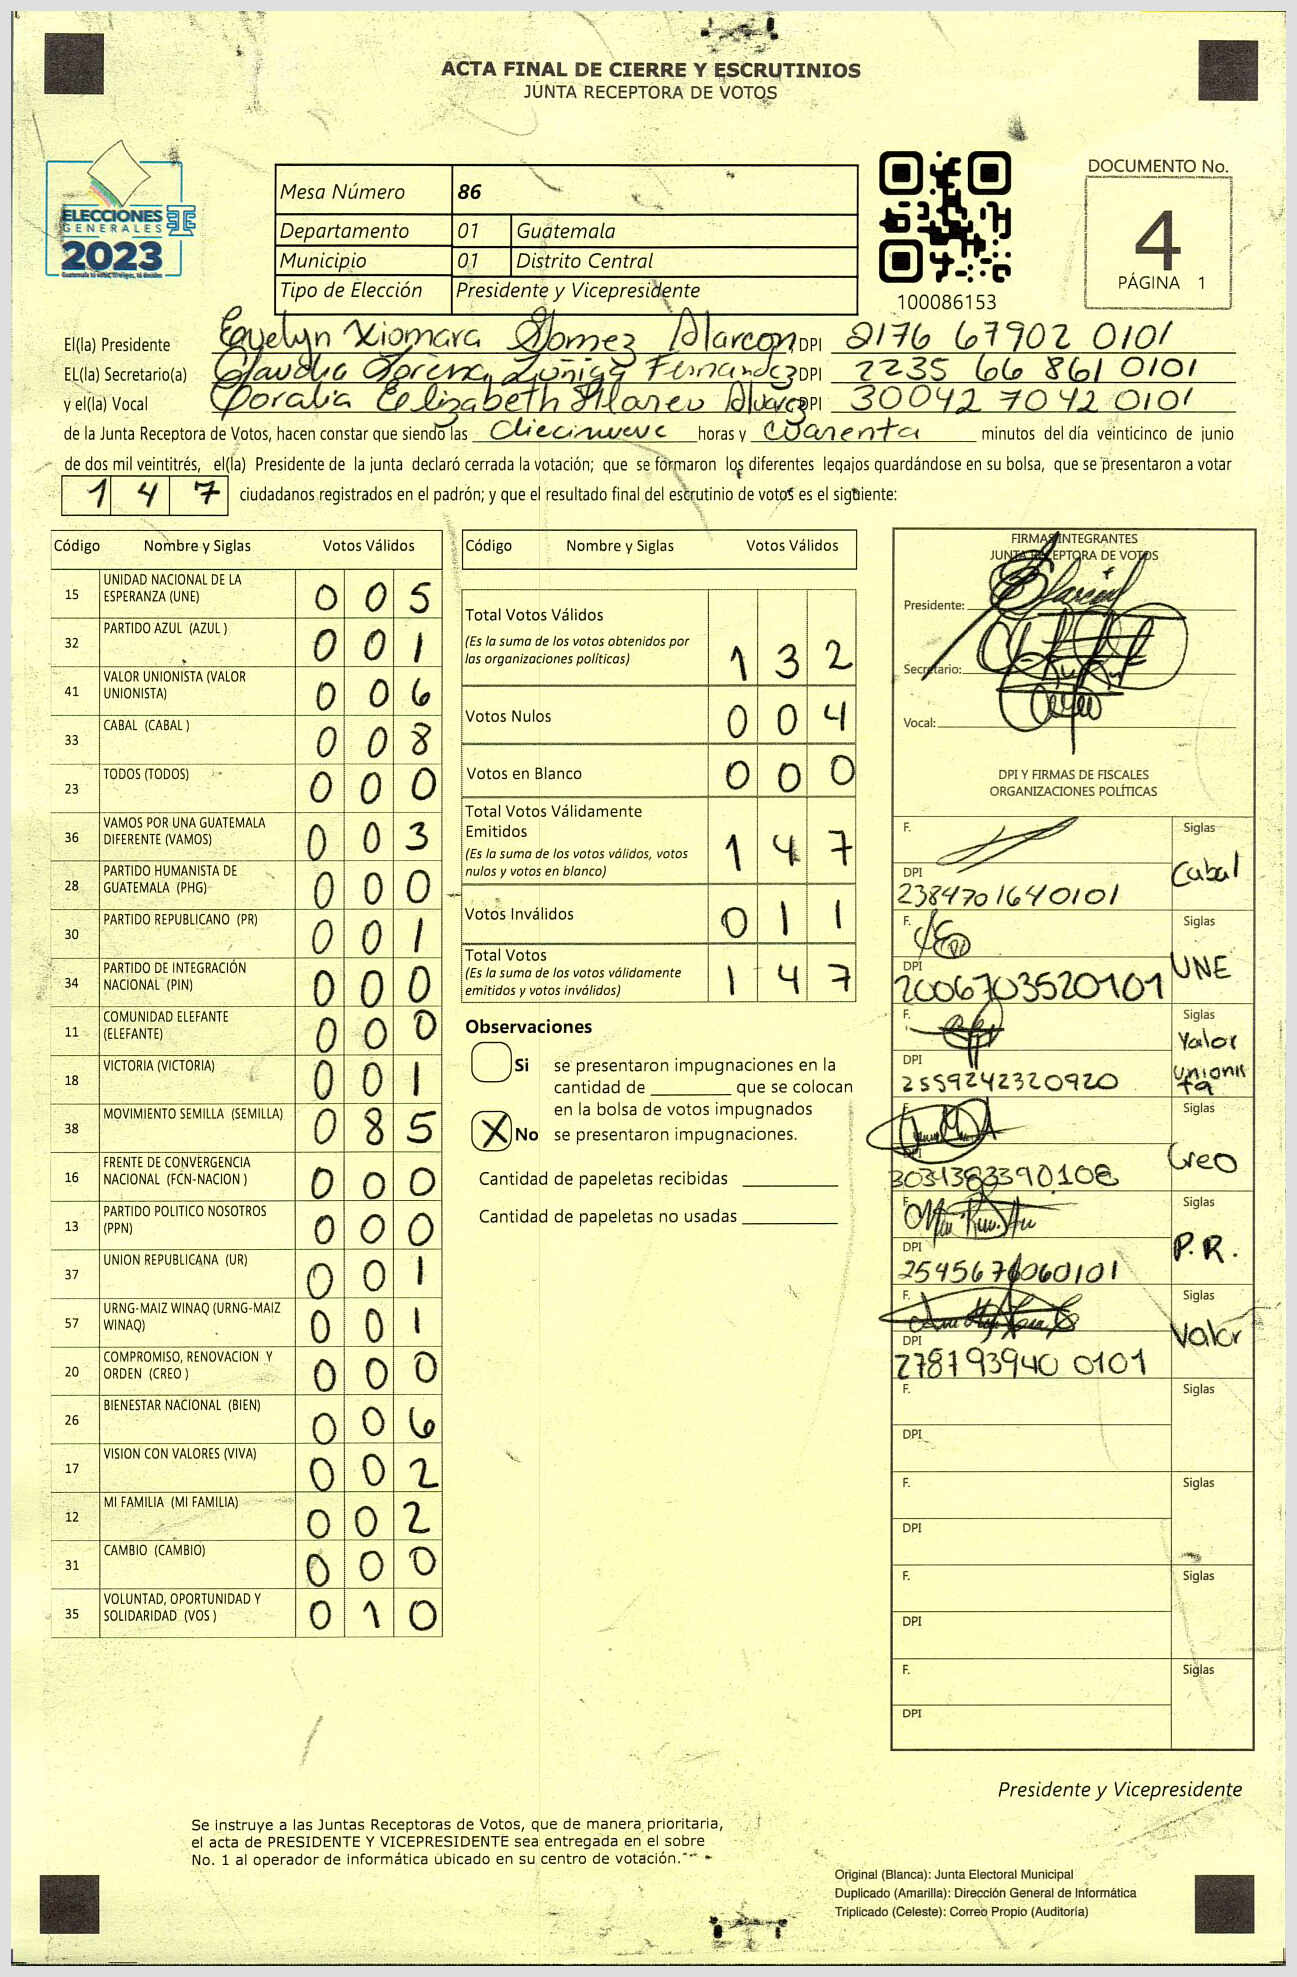 ACTA FINAL DE CIERRE Y ESCRUTINIOS
JUNTA RECEPTORA DE VOTOS
ELECCIONES
GENERALES
2023
Mesa Número 86
Departamento 01 Guatemala
Municipio 01 Distrito Central
Tipo de Elección Presidente y Vicepresidente
100086153
DOCUMENTO No.
4
PÁGINA 1
El(la) Presidente Evelyn Xiomara Gómez Alarcon, DPI 2176 67902 0101
EL(la) Secretario(a) Claudia Lorena Zúñiga Fernandez DPI 2235 66 861 0101
y el(la) Vocal Doralia Elizabeth Alvarez DPI 30042 7042 0101
de la Junta Receptora de Votos, hacen constar que siendo las diecinueve horas y cuarenta minutos del día veinticinco de junio
de dos mil veintitrés, el(la) Presidente de la junta declaró cerrada la votación; que se formaron los diferentes legajos guardándose en su bolsa, que se presentaron a votar
147 ciudadanos registrados en el padrón; y que el resultado final del escrutinio de votos es el siguiente:
Código Nombre y Siglas Votos Válidos
15 UNIDAD NACIONAL DE LA ESPERANZA (UNE) 005
32 PARTIDO AZUL (AZUL ) 001
41 VALOR UNIONISTA (VALOR UNIONISTA) 006
33 CABAL (CABAL ) 008
23 TODOS (TODOS) 000
36 VAMOS POR UNA GUATEMALA DIFERENTE (VAMOS) 003
28 PARTIDO HUMANISTA DE GUATEMALA (PHG) 000
30 PARTIDO REPUBLICANO (PR) 001
34 PARTIDO DE INTEGRACIÓN NACIONAL (PIN) 000
11 COMUNIDAD ELEFANTE (ELEFANTE) 000
18 VICTORIA (VICTORIA) 001
38 MOVIMIENTO SEMILLA (SEMILLA) 085
16 FRENTE DE CONVERGENCIA NACIONAL (FCN-NACION ) 000
13 PARTIDO POLITICO NOSOTROS (PPN) 000
37 UNION REPUBLICANA (UR) 001
57 URNG-MAIZ WINAQ (URNG-MAIZ WINAQ) 001
20 COMPROMISO, RENOVACION Y ORDEN (CREO ) 000
26 BIENESTAR NACIONAL (BIEN) 006
17 VISION CON VALORES (VIVA) 002
12 MI FAMILIA (MI FAMILIA) 002
31 CAMBIO (CAMBIO) 000
35 VOLUNTAD, OPORTUNIDAD Y SOLIDARIDAD (VOS ) 010
Código Nombre y Siglas Votos Válidos
Total Votos Válidos
(Es la suma de los votos obtenidos por
las organizaciones políticas) 132
Votos Nulos 004
Votos en Blanco 000
Total Votos Válidamente
Emitidos
(Es la suma de los votos válidos, votos
nulos y votos en blanco) 147
Votos Inválidos 011
Total Votos
(Es la suma de los votos válidamente
emitidos y votos inválidos) 147
Observaciones
Si se presentaron impugnaciones en la
cantidad de ________ que se colocan
en la bolsa de votos impugnados
X No se presentaron impugnaciones.
Cantidad de papeletas recibidas
Cantidad de papeletas no usadas
FIRMAS INTEGRANTES
JUNTA RECEPTORA DE VOTOS
Presidente:
Secretario:
Vocal:
DPI Y FIRMAS DE FISCALES
ORGANIZACIONES POLÍTICAS
F. Siglas
Cabal
DPI
2384701640101
F. Siglas
UNE
DPI
2006703520101
F. Siglas
Valor
Unionista
DPI
2559242320920
F. Siglas
Creo
DPI
3031383390108
F. Siglas
P.R.
DPI
F. Siglas
Valor
DPI
278793940 0101
F. Siglas
DPI
F. Siglas
DPI
F. Siglas
DPI
F. Siglas
DPI
Presidente y Vicepresidente
Se instruye a las Juntas Receptoras de Votos, que de manera prioritaria,
el acta de PRESIDENTE Y VICEPRESIDENTE sea entregada en el sobre
No. 1 al operador de informática ubicado en su centro de votación.
Original (Blanca): Junta Electoral Municipal
Duplicado (Amarilla): Dirección General de Informática
Triplicado (Celeste): Correo Propio (Auditoría)